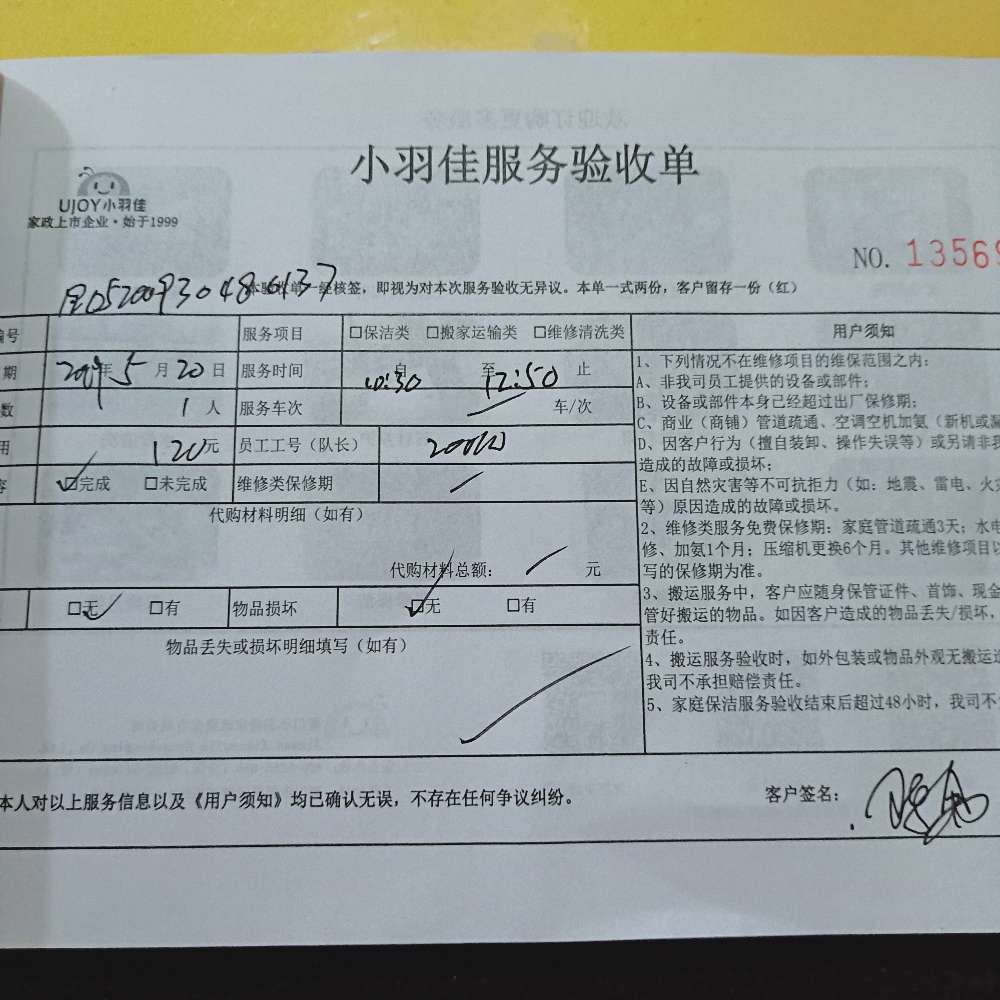 小羽佳服务验收单
UJOY小羽佳
家政上市企业·始于1999
NO. 13569
本验收单一经核签，即视为对本次服务验收无异议。本单一式两份，客户留存一份（红）
编号 服务项目 □保洁类 □搬家运输类 □维修清洗类 用户须知
期 年5月20日 服务时间 10:30 自 至 12:50 止
数 1人 服务车次 车/次
用 120元 员工工号（队长）
容 ☑完成 □未完成 维修类保修期
代购材料明细（如有）
代购材料总额： 元
☑无 □有 物品损坏 ☑无 □有
物品丢失或损坏明细填写（如有）
1、下列情况不在维修项目的维保范围之内：
A、非我司员工提供的设备或部件；
B、设备或部件本身已经超过出厂保修期；
C、商业（商铺）管道疏通、空调空机加氨（新机或漏
D、因客户行为（擅自装卸、操作失误等）或另请非我
造成的故障或损坏；
E、因自然灾害等不可抗拒力（如：地震、雷电、火灾
等）原因造成的故障或损坏。
2、维修类服务免费保修期：家庭管道疏通3天；水电
修、加氨1个月；压缩机更换6个月。其他维修项目以
写的保修期为准。
3、搬运服务中，客户应随身保管证件、首饰、现金
管好搬运的物品。如因客户造成的物品丢失/损坏，
责任。
4、搬运服务验收时，如外包装或物品外观无搬运造
我司不承担赔偿责任。
5、家庭保洁服务验收结束后超过48小时，我司不
本人对以上服务信息以及《用户须知》均已确认无误，不存在任何争议纠纷。
客户签名：